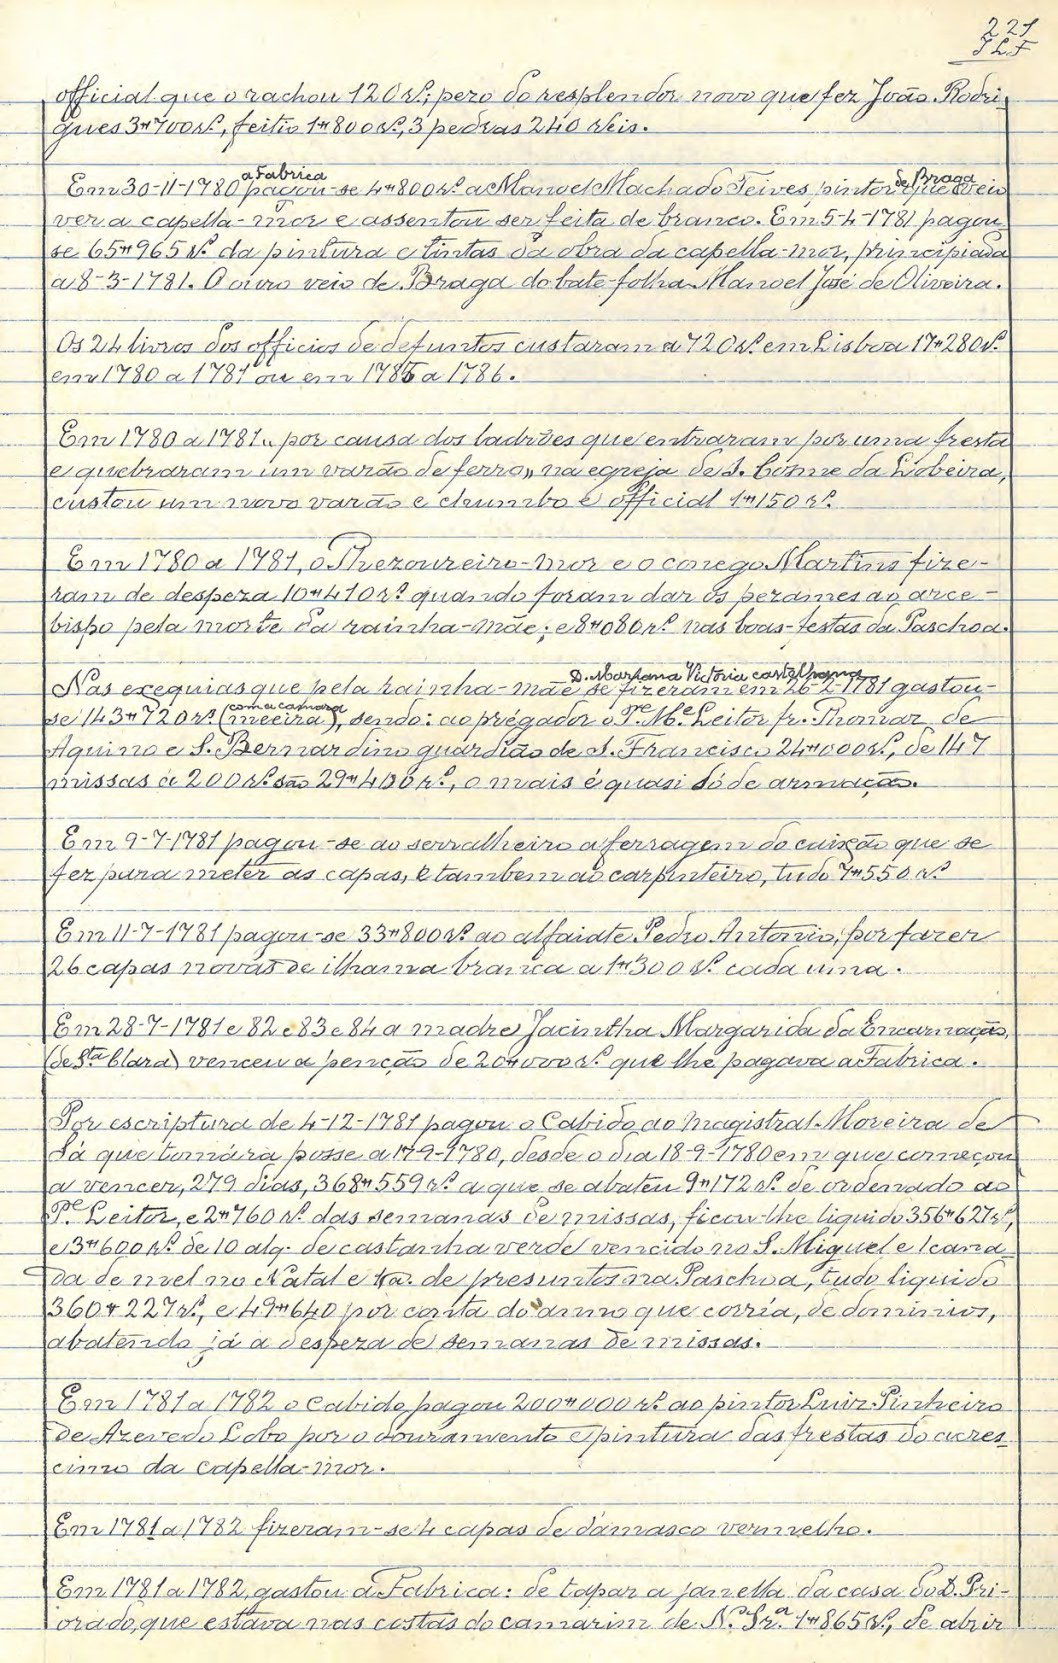 221
J L F
official que o rachou 120 rs.; pezo do resplendor novo que fez João Rodri-
gues 3#700 rs., feitio 1#800 rs., 3 pedras 240 reis.
Em 30-11-1780 a Fabrica pagou-se 4#800 rs. a Manoel Machado Teives, pintor de Braga que veio
ver a capella-mor e assentou ser feita de branco. Em 5-4-1781 pagou-
se 65#965 rs. da pintura e tintas da obra da capella-mor, principiada
a 8-3-1781. O ouro veio de Braga do bate-folha Manoel José de Oliveira.
Os 24 livros dos officios de defuntos custaram a 720 rs. em Lisboa 17#280 rs.
em 1780 a 1781 ou em 1785 a 1786.
Em 1780 a 1781 „ por causa dos ladrões que entraram por uma fresta
e quebraram um varão de ferro „ na egreja de S. Cosme da Lobeira,
custou um novo varão e chumbo e official 1#150 rs.
Em 1780 a 1781, o Thezoureiro-mor e o conego Martins fize-
ram de despeza 10#410 rs. quando foram dar os pezames ao arce-
bispo pela morte da rainha-mãe; e 8#080 rs. nas boas-festas da Paschoa.
Nas exequias que pela rainha-mãe D. Mariana Victoria castelhana se fizeram em 26-2-1781 gastou-
se 143#720 rs. (com a camara meeira), sendo: ao prégador o Pe. Me. Leitor fr. Thomaz de
Aquino e S. Bernardino guardião de S. Francisco 24#000 rs., de 147
missas a 200 rs. são 29#400 rs., o mais é quasi só de armação.
Em 9-7-1781 pagou-se ao serralheiro a ferragem do caixão que se
fez para meter as capas, e tambem ao carpinteiro, tudo 7#550 rs.
Em 11-7-1781 pagou-se 33#800 rs. ao alfaiate Pedro Antonio, por fazer
26 capas novas de ilhama branca a 1#300 rs. cada uma.
Em 28-7-1781 e 82 e 83 e 84 a madre Jacintha Margarida da Encarnação,
(de Sta. Clara) venceu a penção de 20#000 rs. que lhe pagava a Fabrica.
Por escriptura de 4-12-1781 pagou o Cabido ao Magistral Moreira de
Sá que tomára posse a 17-9-1780, desde o dia 18-9-1780 em que começou
a vencer, 279 dias, 368#559 rs. a que se abateu 9#172 rs. de ordenado ao
Pe. Leitor, e 2#760 rs. das semanas de missas, ficou-lhe liquido 356#627 rs.,
e 3#600 rs. de 10 alq. de castanha verde vencido no S. Miguel e 1 cana-
da de mel no Natal e de presuntos na Paschoa, tudo liquido
360#227 rs., e 49#640 por conta do anno que corria, de dominios,
abatendo já a despeza de semanas de missas.
Em 1781 a 1782 o Cabido pagou 200#000 rs. ao pintor Luiz Pinheiro
de Azevedo Lobo por o douramento e pintura das frestas do acres-
cimo da capella-mor.
Em 1781 a 1782 fizeram-se 4 capas de damasco vermelho.
Em 1781 a 1782, gastou a Fabrica: de tapar a janella da casa do D. Pri-
orado, que estava nas costas do camarim de N. Sra. 1#865 rs., de abrir